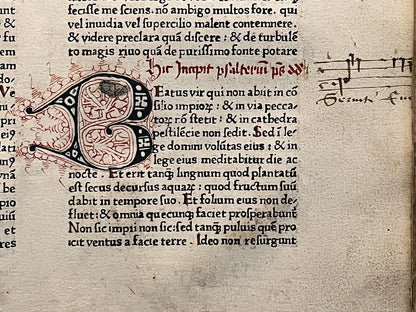 fecisse me sciens. nō ambigo multos fore. qui
vel inuidia vel supercilio malent contemnere.
& videre preclara quā discere: & de turbulē
to magis riuo quā de purissimo fonte potare
Hic Incipit psalteriū
Beatus vir qui non abiit in cō
silio impioꝝ: & in via pecca-
toꝝ nō stetit: & in cathedra
pestilēcie non sedit. Sed ī le-
ge domini volūtas eius: & in
lege eius meditabitur die ac
nocte. Et erit tanꝗ lingnum quod plantatū
est secus decursus aquaꝝ: quod fructum suū
dabit in tempore suo. Et folium eius non de-
fluet: & omnia quecunꝗ faciet prosperabunt
Non sic impii non sic: sed tanꝗ puluis quē pro
icit ventus a facie terre. Ideo non resurgunt